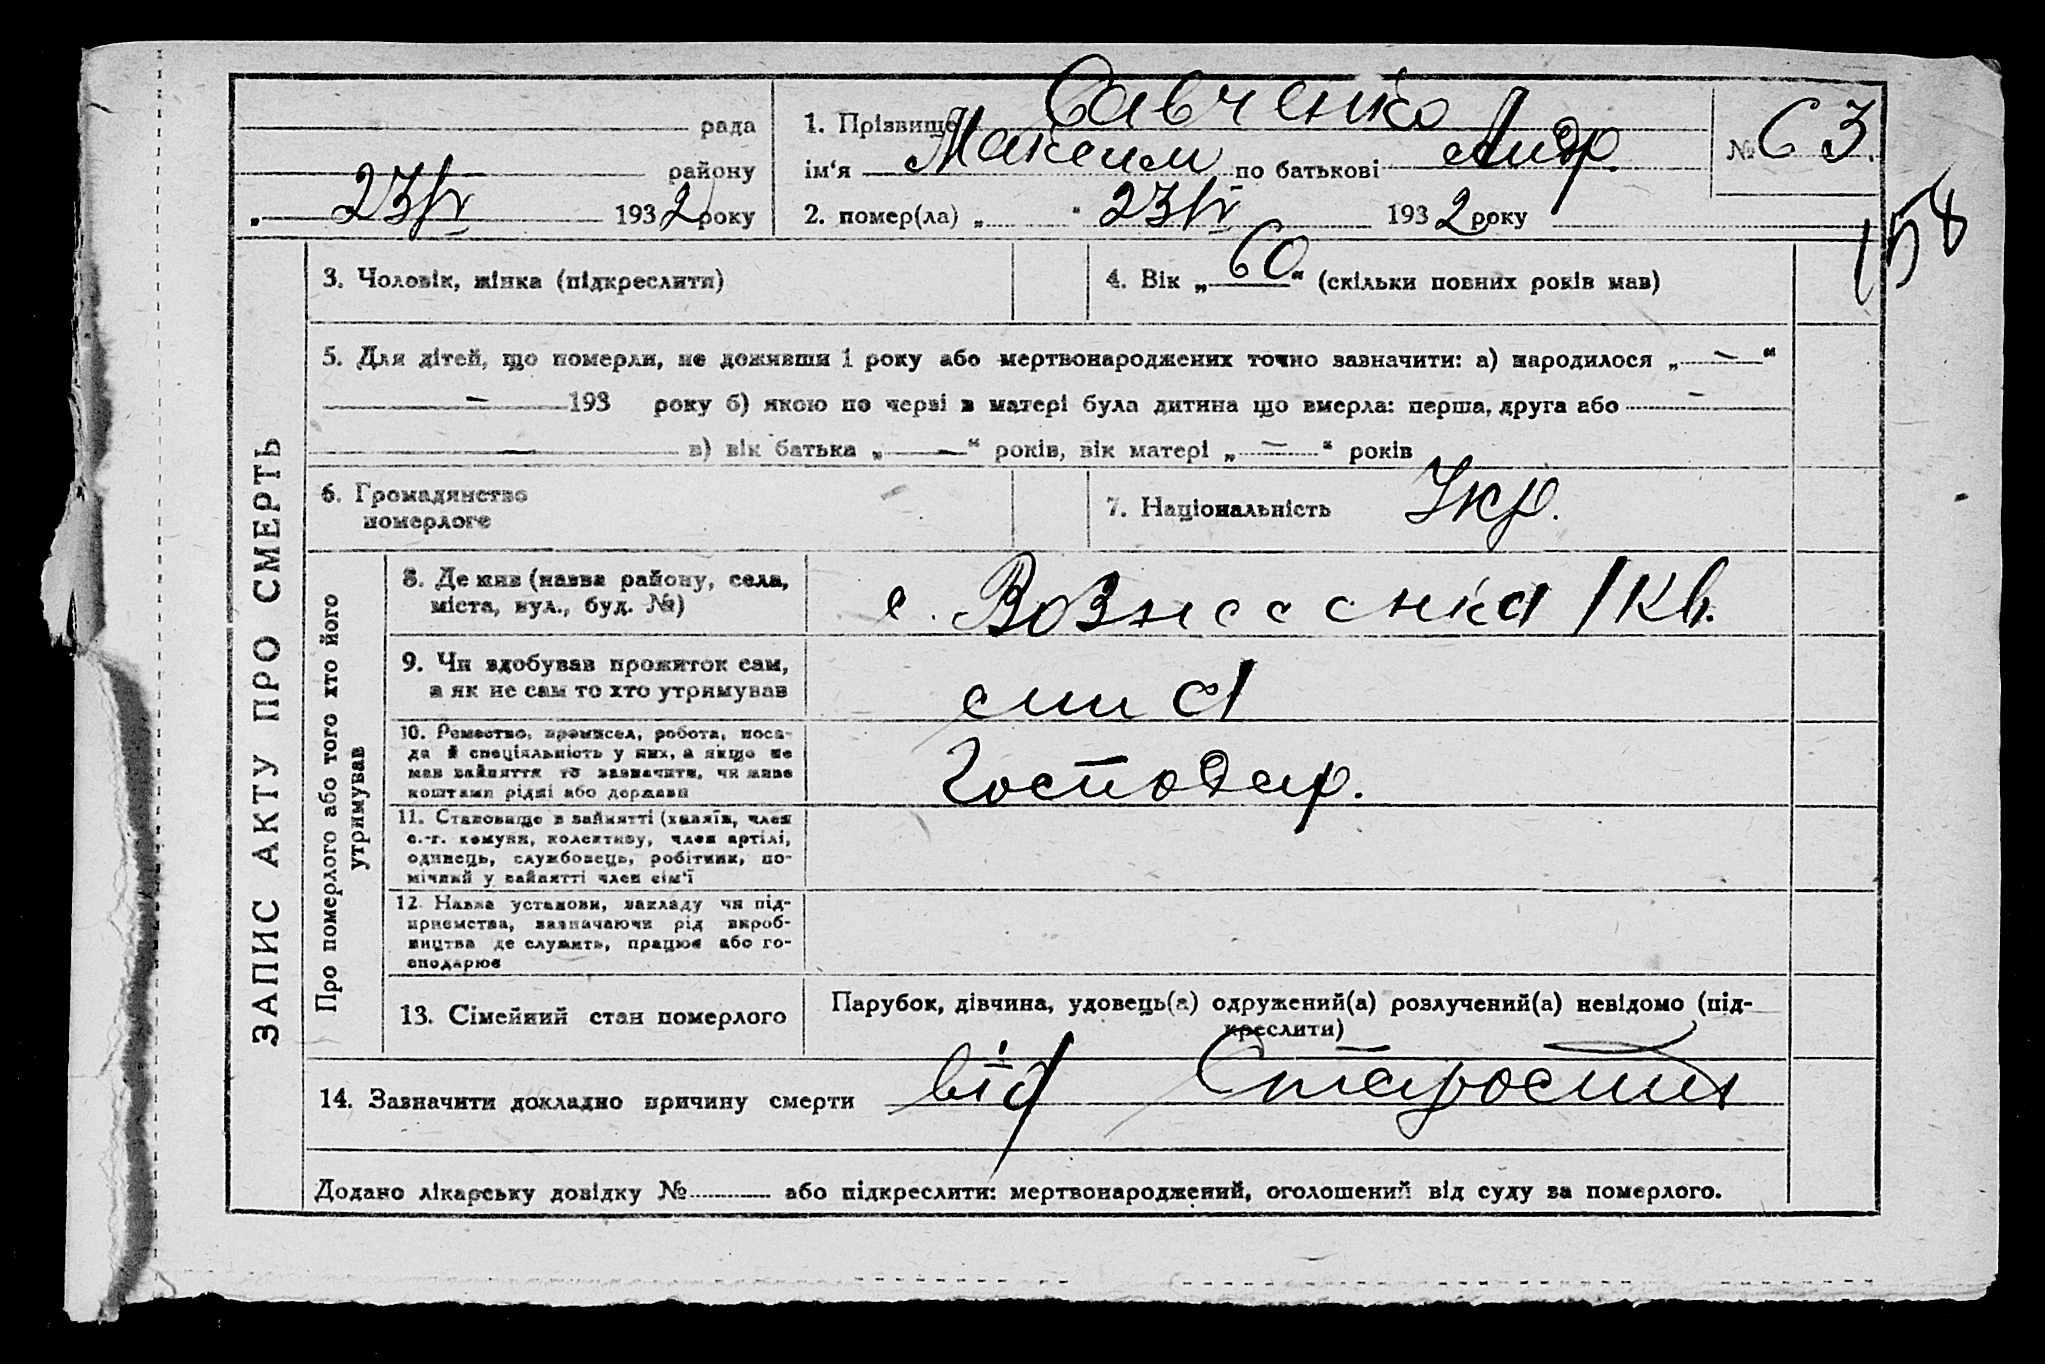 рада
району
„ 23/IV 1932 року
1. Прізвище Савченко
ім'я Максим по батькові Андр.
№ 63.
2. помер(ла) „ “ 23/IV 1932 року
158
ЗАПИС АКТУ ПРО СМЕРТЬ
3. Чоловік, жінка (підкреслити)
4. Вік „ 60 “ (скільки повних років мав)
5. Для дітей, що померли, не доживши 1 року або мертвонароджених точно зазначити: а) народилося „ — “
— 193 року б) якою по черзі в матері була дитина що вмерла: перша, друга або —
— в) вік батька „ — “ років, вік матері „ — “ років
6. Громадянство
померлого
7. Національність Укр.
Про померлого або того хто його
утримував
8. Де жив (назва району, села,
міста, вул., буд. №)
с. Вознесенка 1 кв.
9. Чи здобував прожиток сам,
а як не сам то хто утримував
10. Ремество, промисел, робота, поса-
да й спеціяльність у них, а якщо не
мав зайняття то зазначити, чи живе
коштами рідні або держави
Господар.
11. Становище в зайнятті (хазяїн, член
с.-г. комуни, колективу, член артілі,
одинець, службовець, робітник, по-
мічний у зайнятті член сім'ї
12. Назва установи, закладу чи під-
приємства, зазначаючи рід вироб-
ництва де служить, працює або го-
сподарює
13. Сімейний стан померлого
Парубок, дівчина, удовець(а) одружений(а) розлучений(а) невідомо (під-
креслити)
14. Зазначити докладно причину смерти від Старости
Додано лікарську довідку № або підкреслити: мертвонароджений, оголошений від суду за померлого.